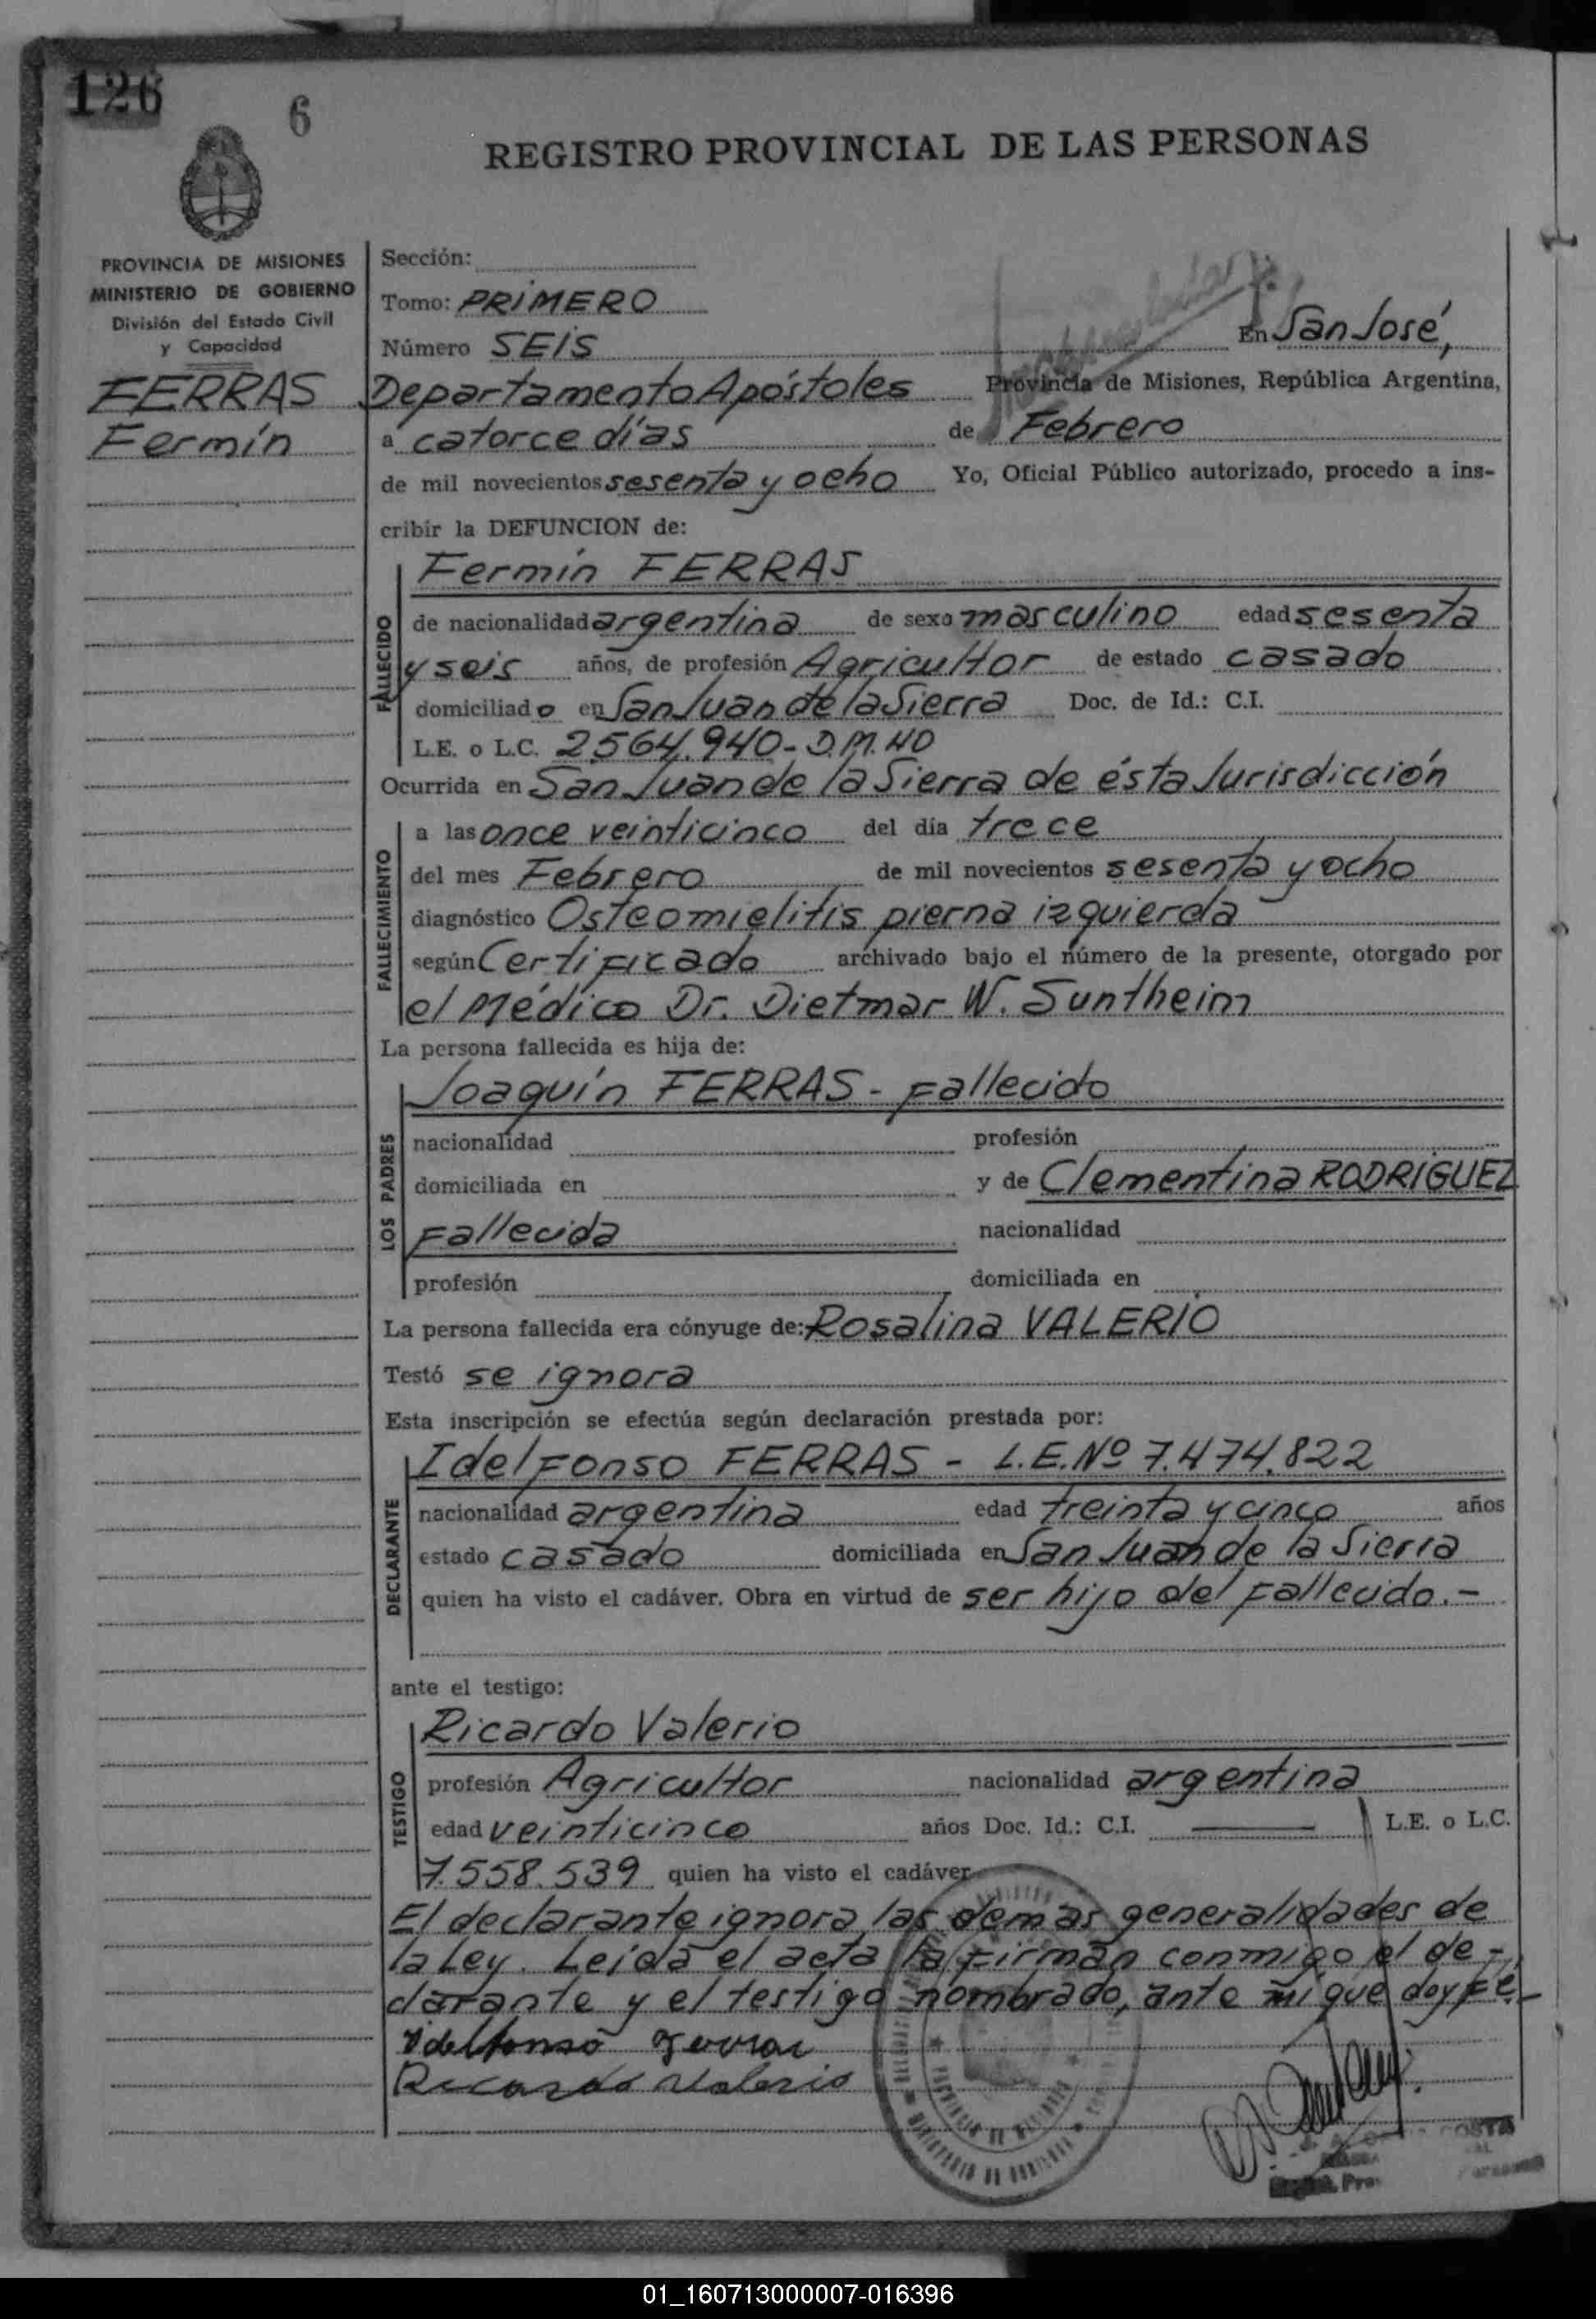 126
6
REGISTRO PROVINCIAL DE LAS PERSONAS
PROVINCIA DE MISIONES
MINISTERIO DE GOBIERNO
División del Estado Civil
y Capacidad
FERRAS
Fermín
Sección:
Tomo: PRIMERO
Número SEIS En San José,
Departamento Apóstoles Provincia de Misiones, República Argentina,
a catorce días de Febrero
de mil novecientos sesenta y ocho Yo, Oficial Público autorizado, procedo a ins-
cribir la DEFUNCION de:
FALLECIDO
Fermín FERRAS
de nacionalidad argentina de sexo masculino edad sesenta
y seis años, de profesión Agricultor de estado casado
domiciliado en San Juan de la Sierra Doc. de Id.: C.I.
L.E. o L.C. 2.564.940 - D.M. 40
Ocurrida en San Juan de la Sierra de ésta Jurisdicción
FALLECIMIENTO
a las once veinticinco del día trece
del mes Febrero de mil novecientos sesenta y ocho
diagnóstico Osteomielitis pierna izquierda
según Certificado archivado bajo el número de la presente, otorgado por
el Médico Dr. Dietmar W. Suntheim
La persona fallecida es hija de:
LOS PADRES
Joaquín FERRAS - Fallecido
nacionalidad profesión
domiciliada en y de Clementina RODRIGUEZ
Fallecida nacionalidad
profesión domiciliada en
La persona fallecida era cónyuge de: Rosalina VALERIO
Testó se ignora
Esta inscripción se efectúa según declaración prestada por:
DECLARANTE
Idelfonso FERRAS - L.E.Nº 7.474.822
nacionalidad argentina edad treinta y cinco años
estado casado domiciliada en San Juan de la Sierra
quien ha visto el cadáver. Obra en virtud de ser hijo del Fallecido.-
ante el testigo:
TESTIGO
Ricardo Valerio
profesión Agricultor nacionalidad argentina
edad veinticinco años Doc. Id.: C.I. L.E. o L.C.
7.558.539 quien ha visto el cadáver
El declarante ignora las demás generalidades de
la Ley. Leída el acta la firman conmigo el de-
clarante y el testigo nombrado, ante mí que doy fé.-
Idelfonso Ferras
Ricardo Valerio
COSTA
01_160713000007-016396